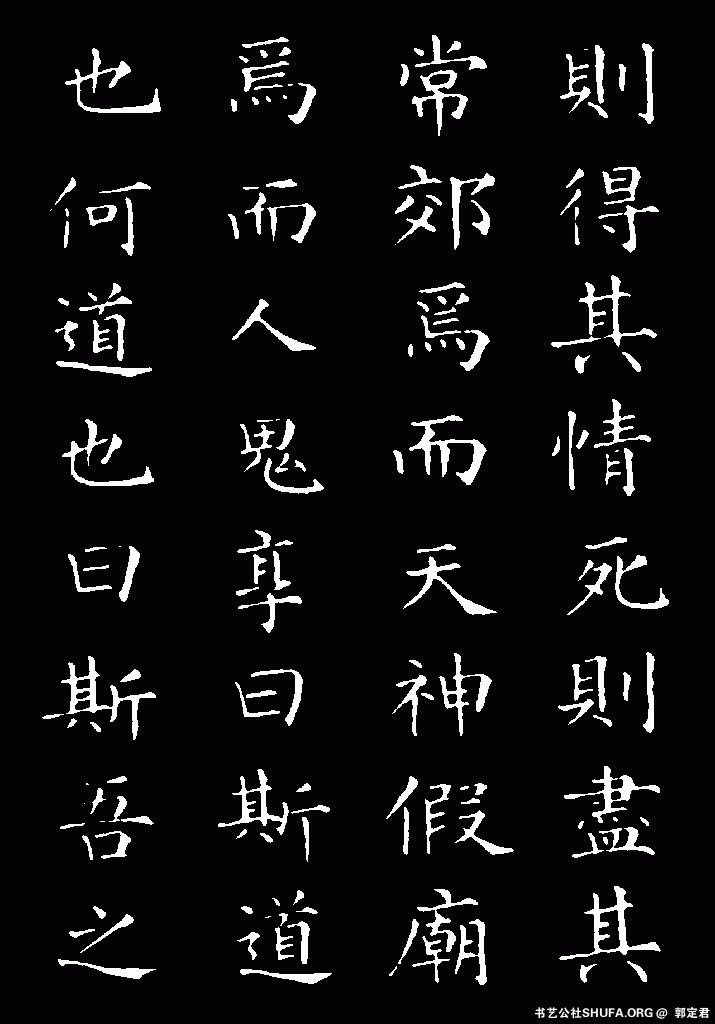 則得其情死則盡其
常郊爲而天神假廟
爲而人鬼享曰斯道
也何道也曰斯吾之
书艺公社SHUFA.ORG @ 郭定君